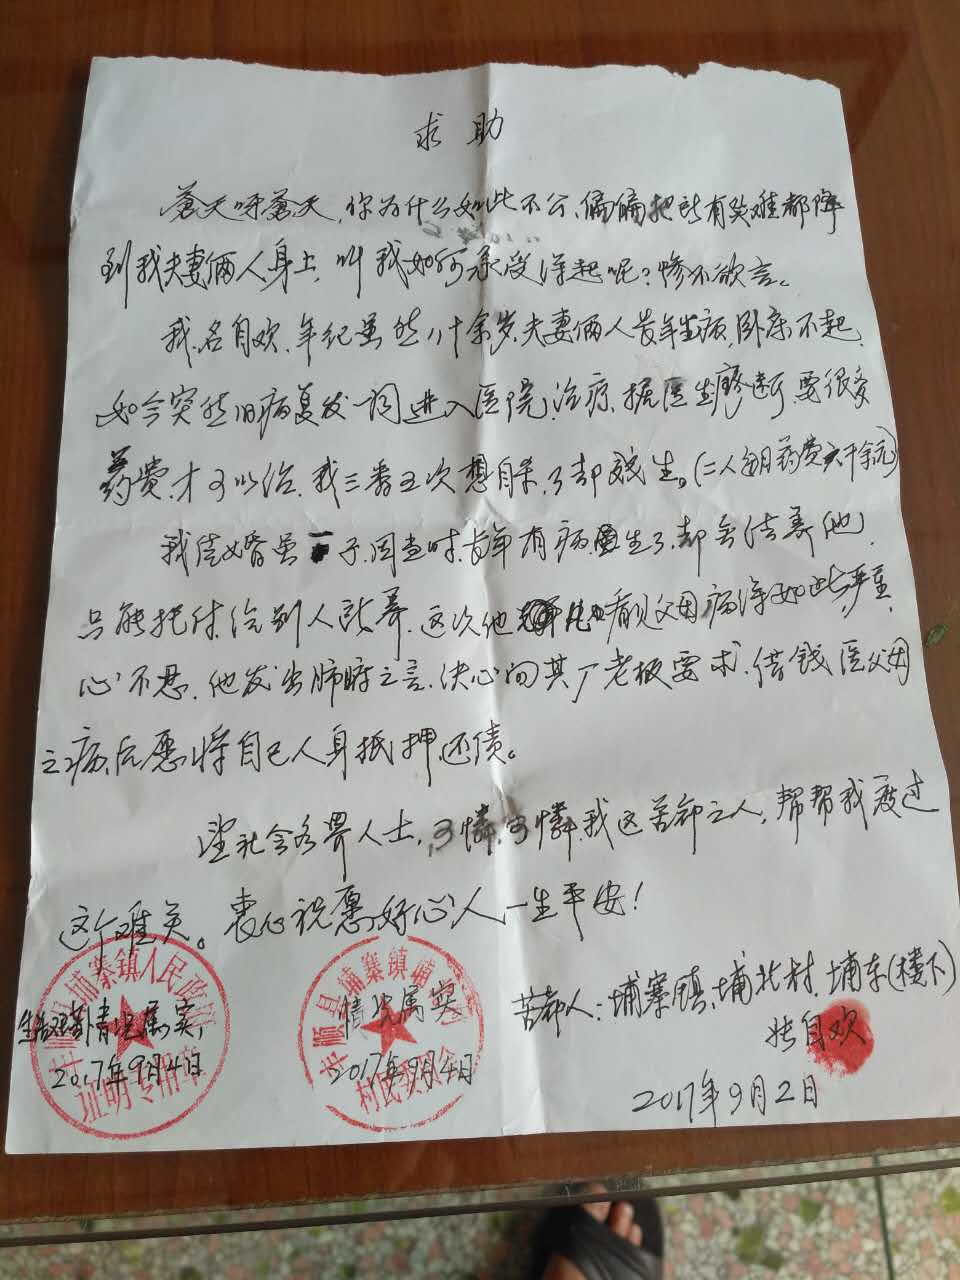 求助
蒼天呀蒼天,你为什么如此不公、偏偏把所有灾难都降
到我夫妻俩人身上,叫我如何承受得起呢?惨不欲言。
我名自欢、年纪虽然八十余岁,夫妻俩人长年生病,卧床不起,
如今突然旧病复发一同进入医院治疗,据医生断,要很多
药费,才可以治,我三番五次想自杀,了却残生。(二人每月药费六千余元)
我结婚虽一子,因当时长年有病,生了却无法养他,
只能把付给别人,这次他看见父母病得如此严重,
心不忍,他发出肺腑之言,决心向其厂老板要求,借钱医父母
之病,后愿将自己人身抵押还债。
望社会各界人士,可憐可憐我这苦命之人,帮帮我度过
这个难关。衷心祝愿好心人一生平安!
苦命人:埔寨镇,埔北村,埔东(楼下)
自欢
2017年9月2日
丰顺县埔寨镇人民政府
生活艰苦情况属实,
2017年9月4日
证明专用章
丰顺县埔寨镇埔北
情况属实
2017年9月4日
村民委员会